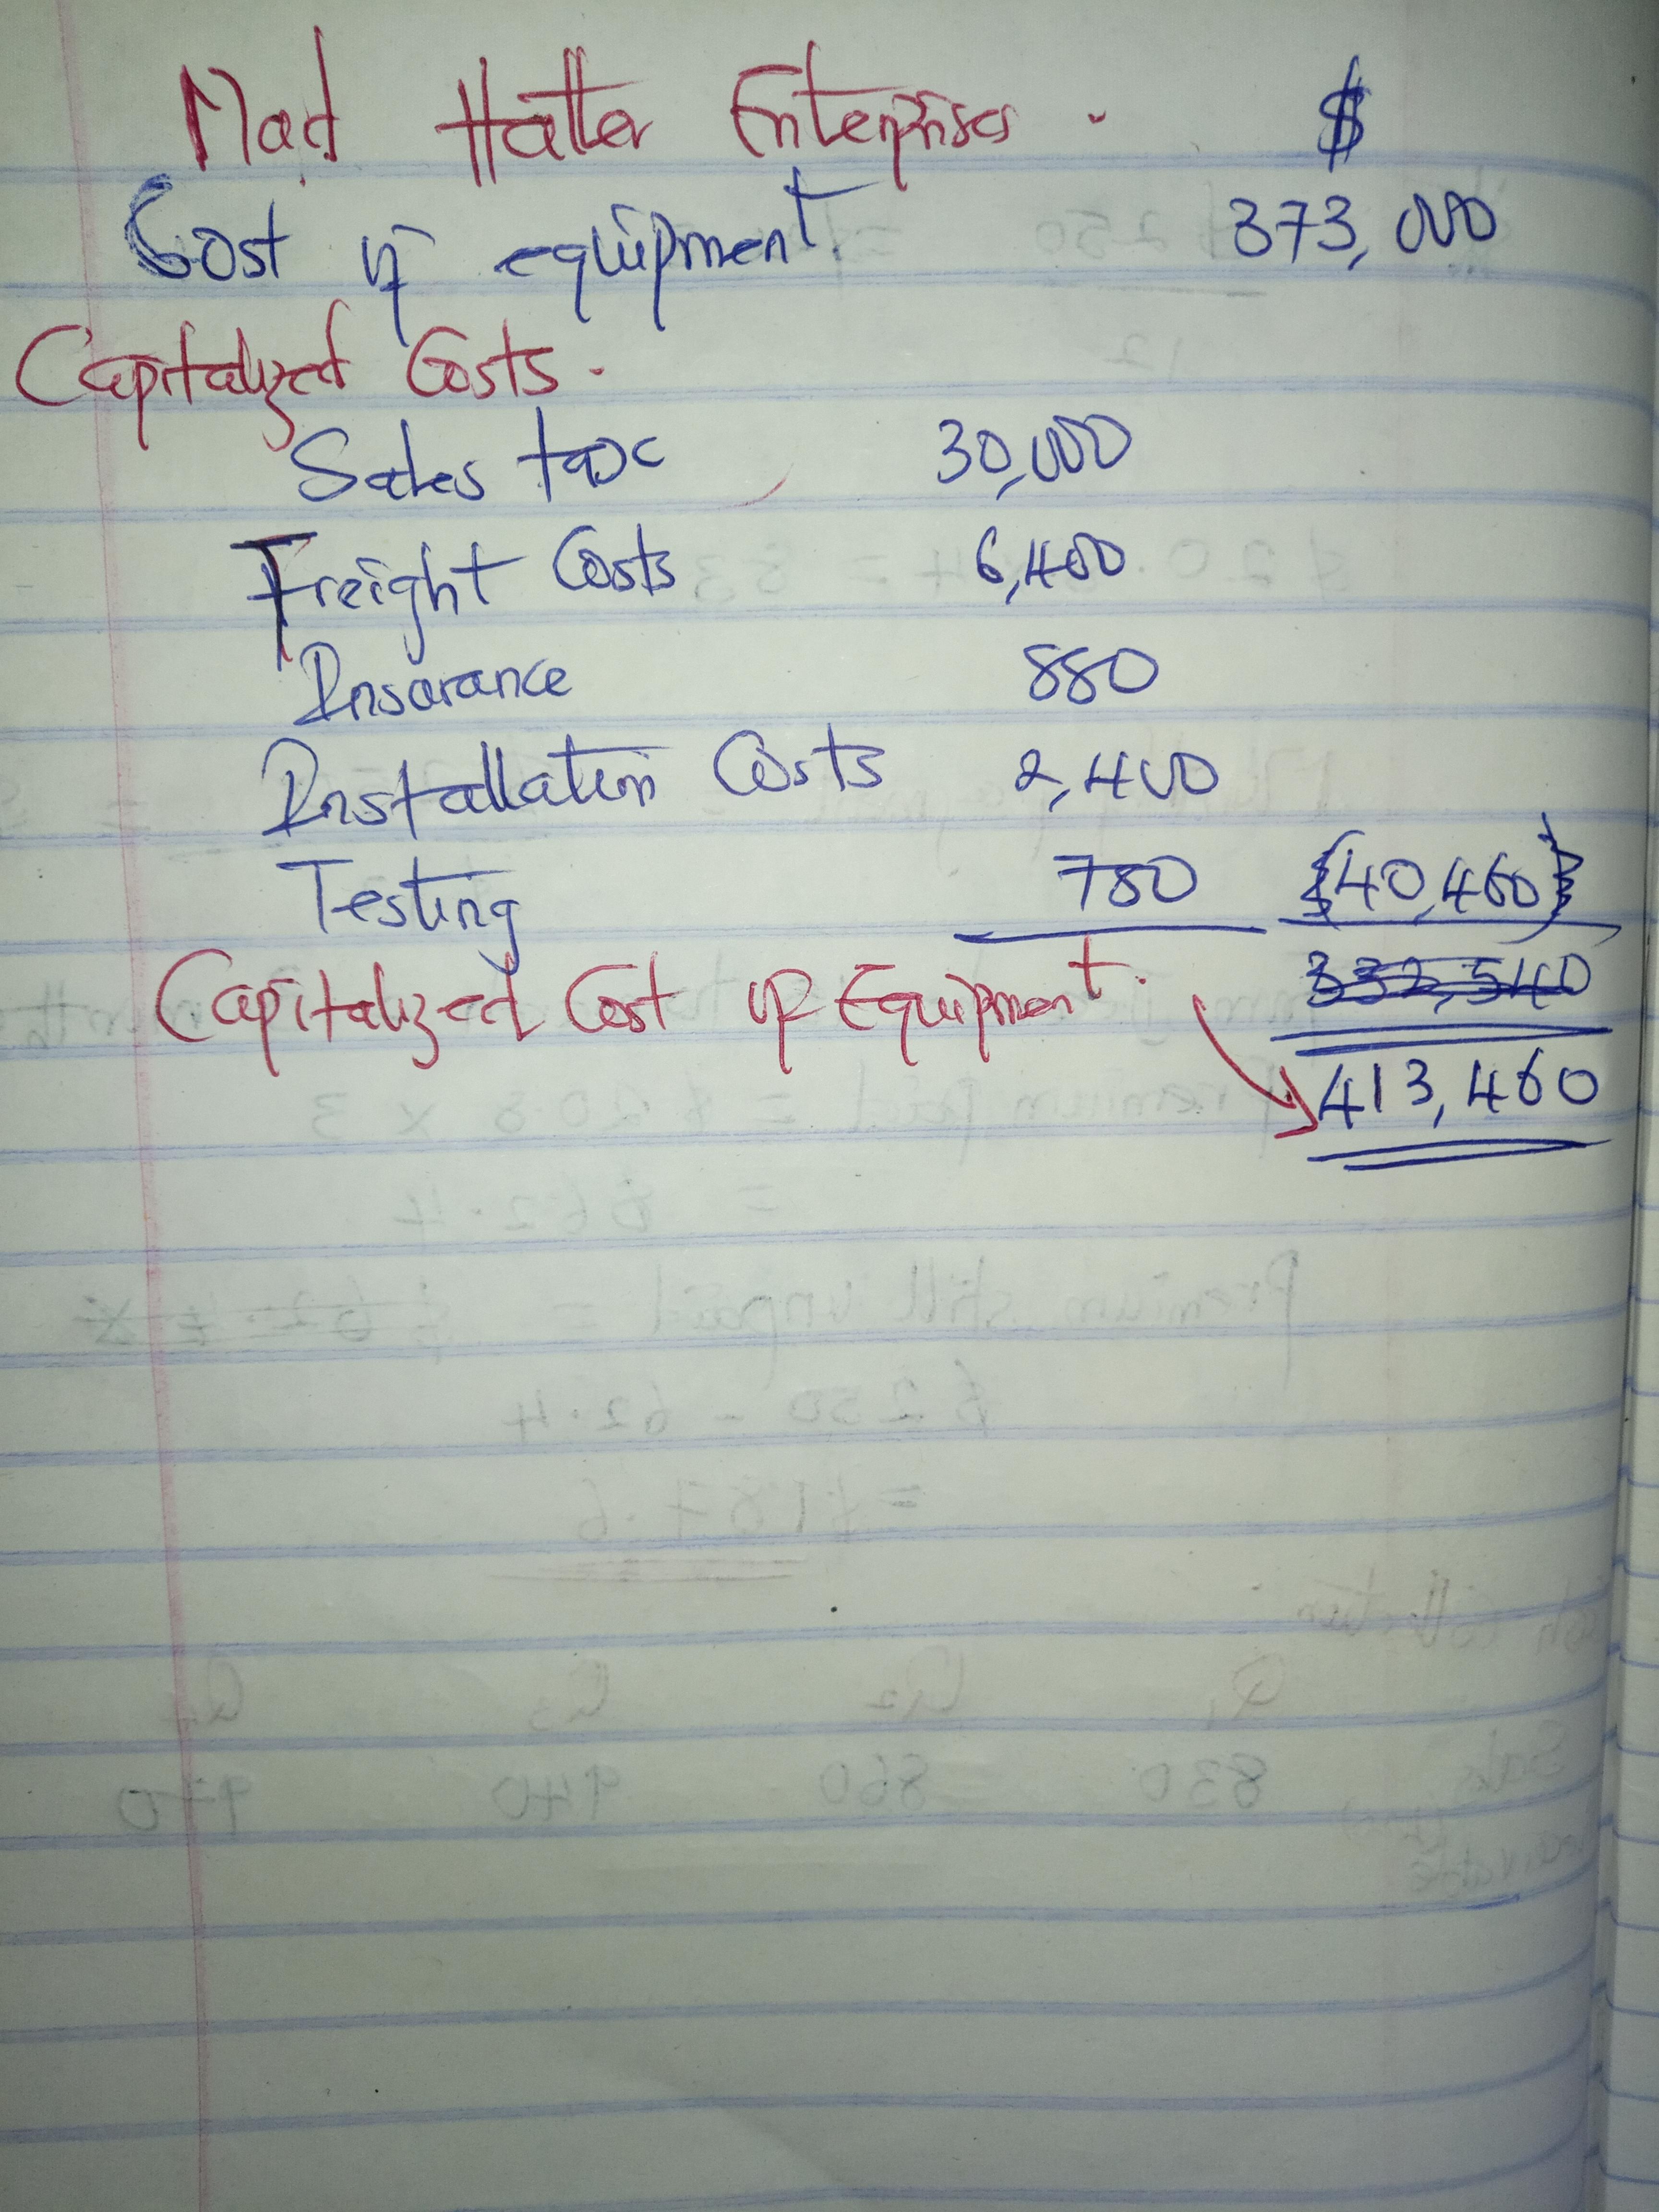 Mad Hatter Enterprises. $
Cost of equipment. 373,000
Capitalized Costs.
Sales tax 30,000
Freight Costs 6,400
Insurance 880
Installation Costs 2,400
Testing 780 (40,460)
332,540
Capitalized Cost of Equipment.
413,460